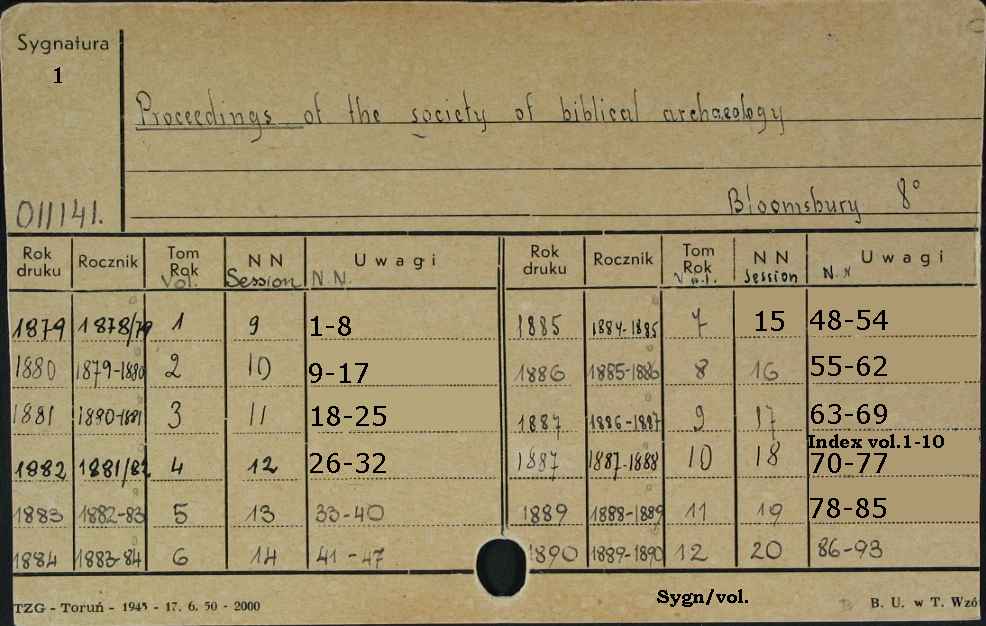 Sygnatura
1
Proceedings of the society of biblical archaeology
Bloomsbury 8°
011141.
Rok druku Rocznik Tom Rok Vol. N N Session Uwagi N.N. Rok druku Rocznik Tom Rok Vol. N N Session Uwagi N.N
1879 1878/79 1 9 1-8 1885 1884-1885 7 15 48-54
1880 1879-1880 2 10 9-17 1886 1885-1886 8 16 55-62
1881 1880-1881 3 11 18-25 1887 1886-1887 9 17 63-69
Index vol.1-10
1882 1881/82 4 12 26-32 1887 1887-1888 10 18 70-77
1883 1882-83 5 13 33-40 1889 1888-1889 11 19 78-85
1884 1883-84 6 14 41-47 1890 1889-1890 12 20 86-93
Sygn/vol.
TZG - Toruń - 1945 - 17. 6. 50 - 2000 B. U. w T. Wzó